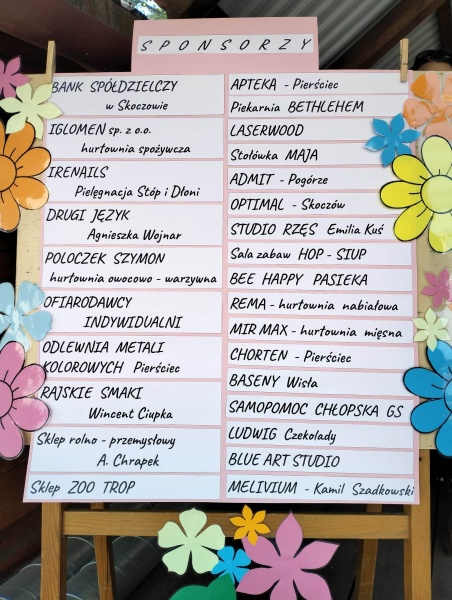 SPONSORZY
BANK SPÓŁDZIELCZY
w Skoczowie
IGLOMEN sp. z o.o.
hurtownia spożywcza
IRENAILS
Pielęgnacja Stóp i Dłoni
DRUGI JĘZYK
Agnieszka Wojnar
POLOCZEK SZYMON
hurtownia owocowo - warzywna
OFIARODAWCY
INDYWIDUALNI
ODLEWNIA METALI
KOLOROWYCH Pierściec
RAJSKIE SMAKI
Wincent Ciupka
Sklep rolno - przemysłowy
A. Chrapek
Sklep ZOO TROP
APTEKA - Pierściec
Piekarnia BETHLEHEM
LASERWOOD
Stołówka MAJA
ADMIT - Pogórze
OPTIMAL - Skoczów
STUDIO RZĘS Emilia Kuś
Sala zabaw HOP - SIUP
BEE HAPPY PASIEKA
REMA - hurtownia nabiałowa
MIR MAX - hurtownia mięsna
CHORTEN - Pierściec
BASENY Wisła
SAMOPOMOC CHŁOPSKA GS
LUDWIG Czekolady
BLUE ART STUDIO
MELIVIUM - Kamil Szadkowski